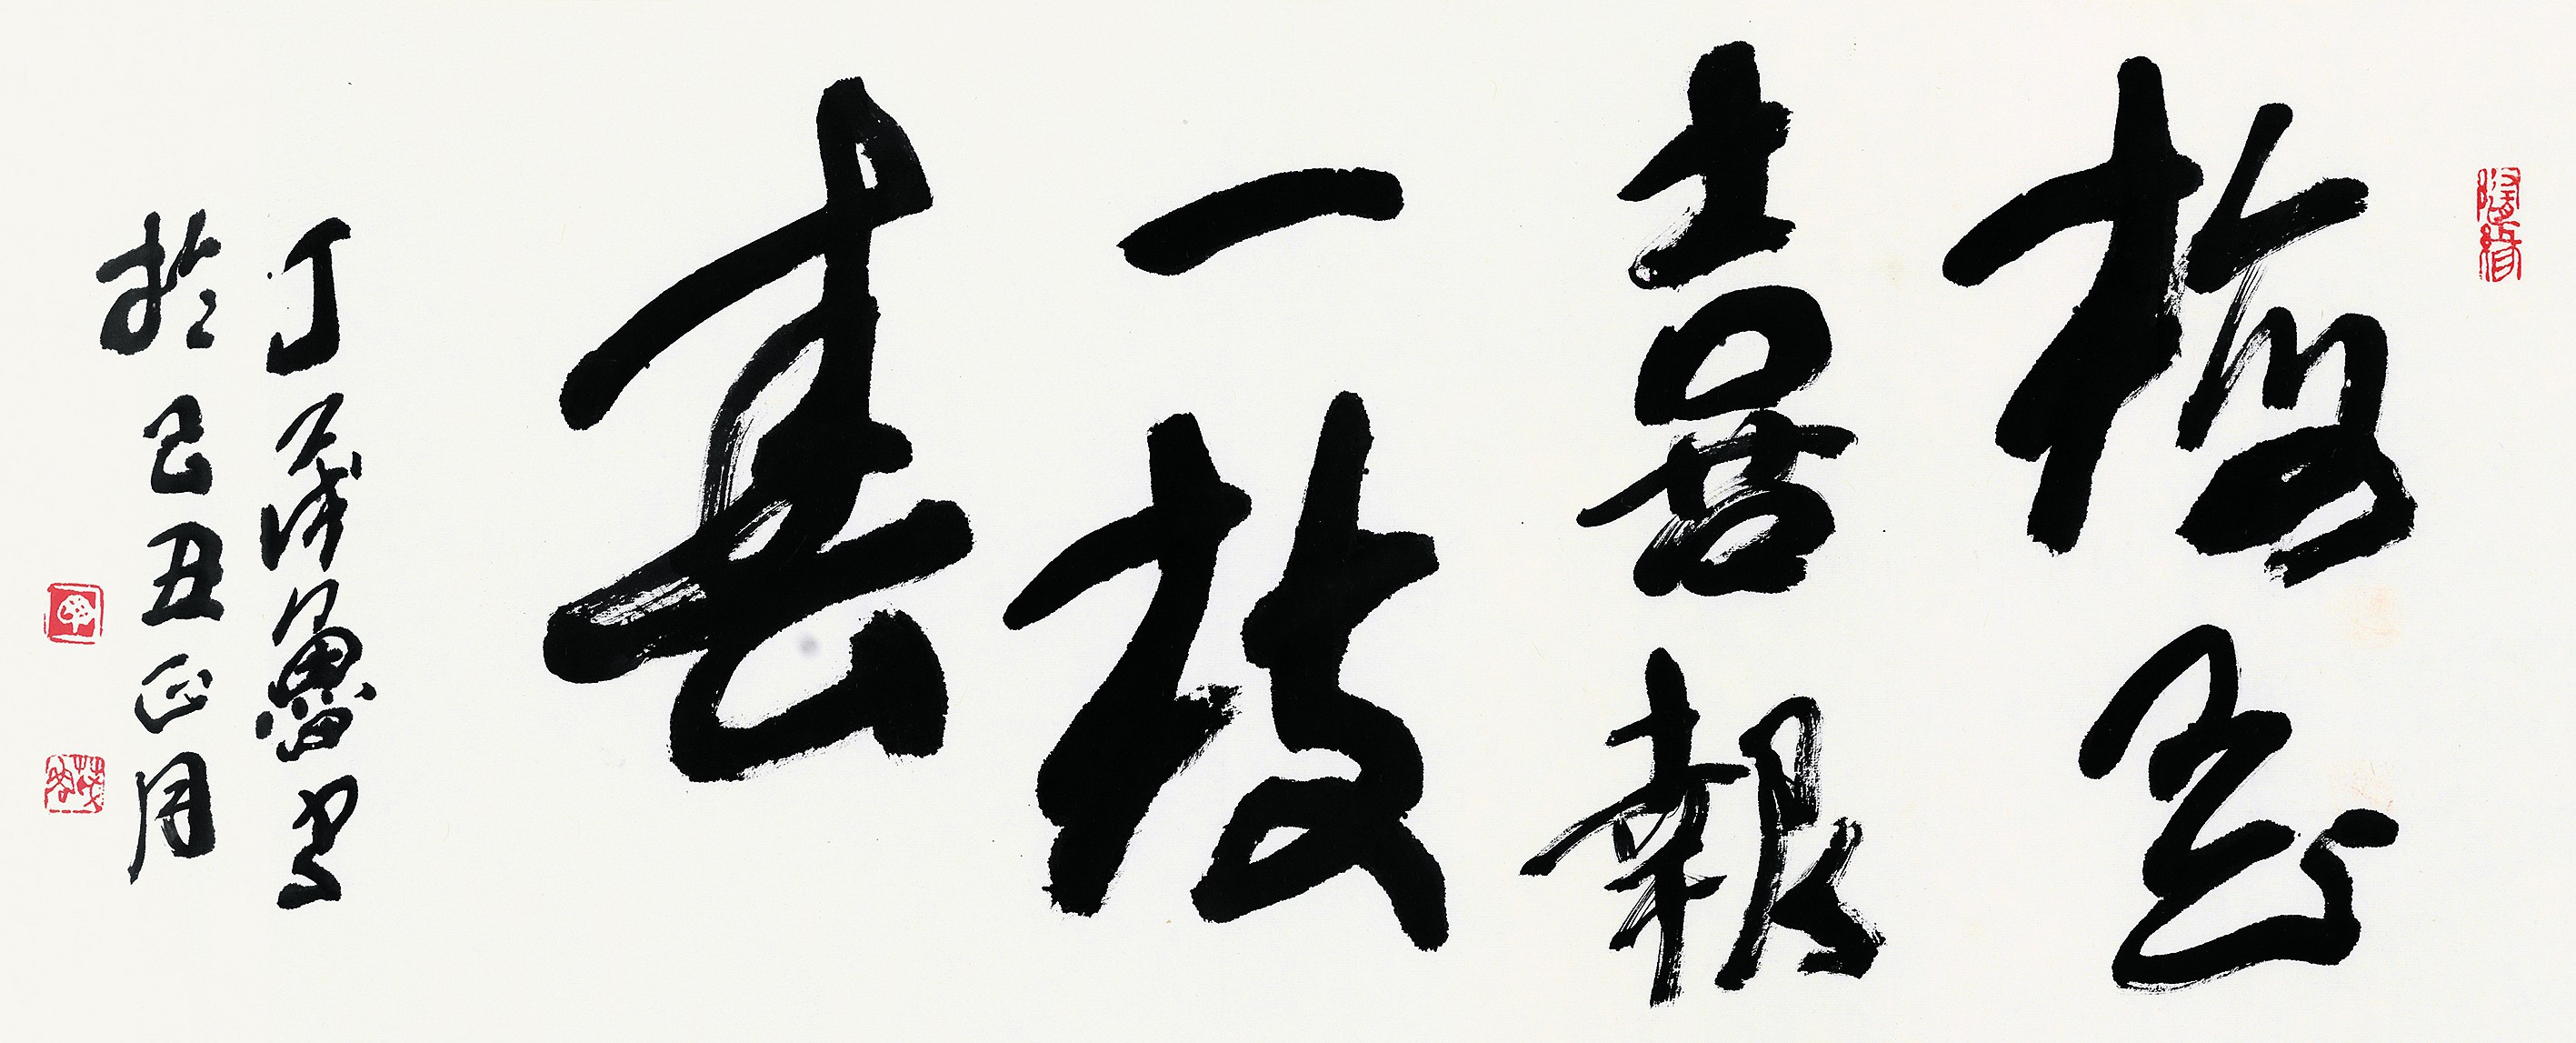 梅花
喜報
一枝
春
丁茂魯書
於己丑正月